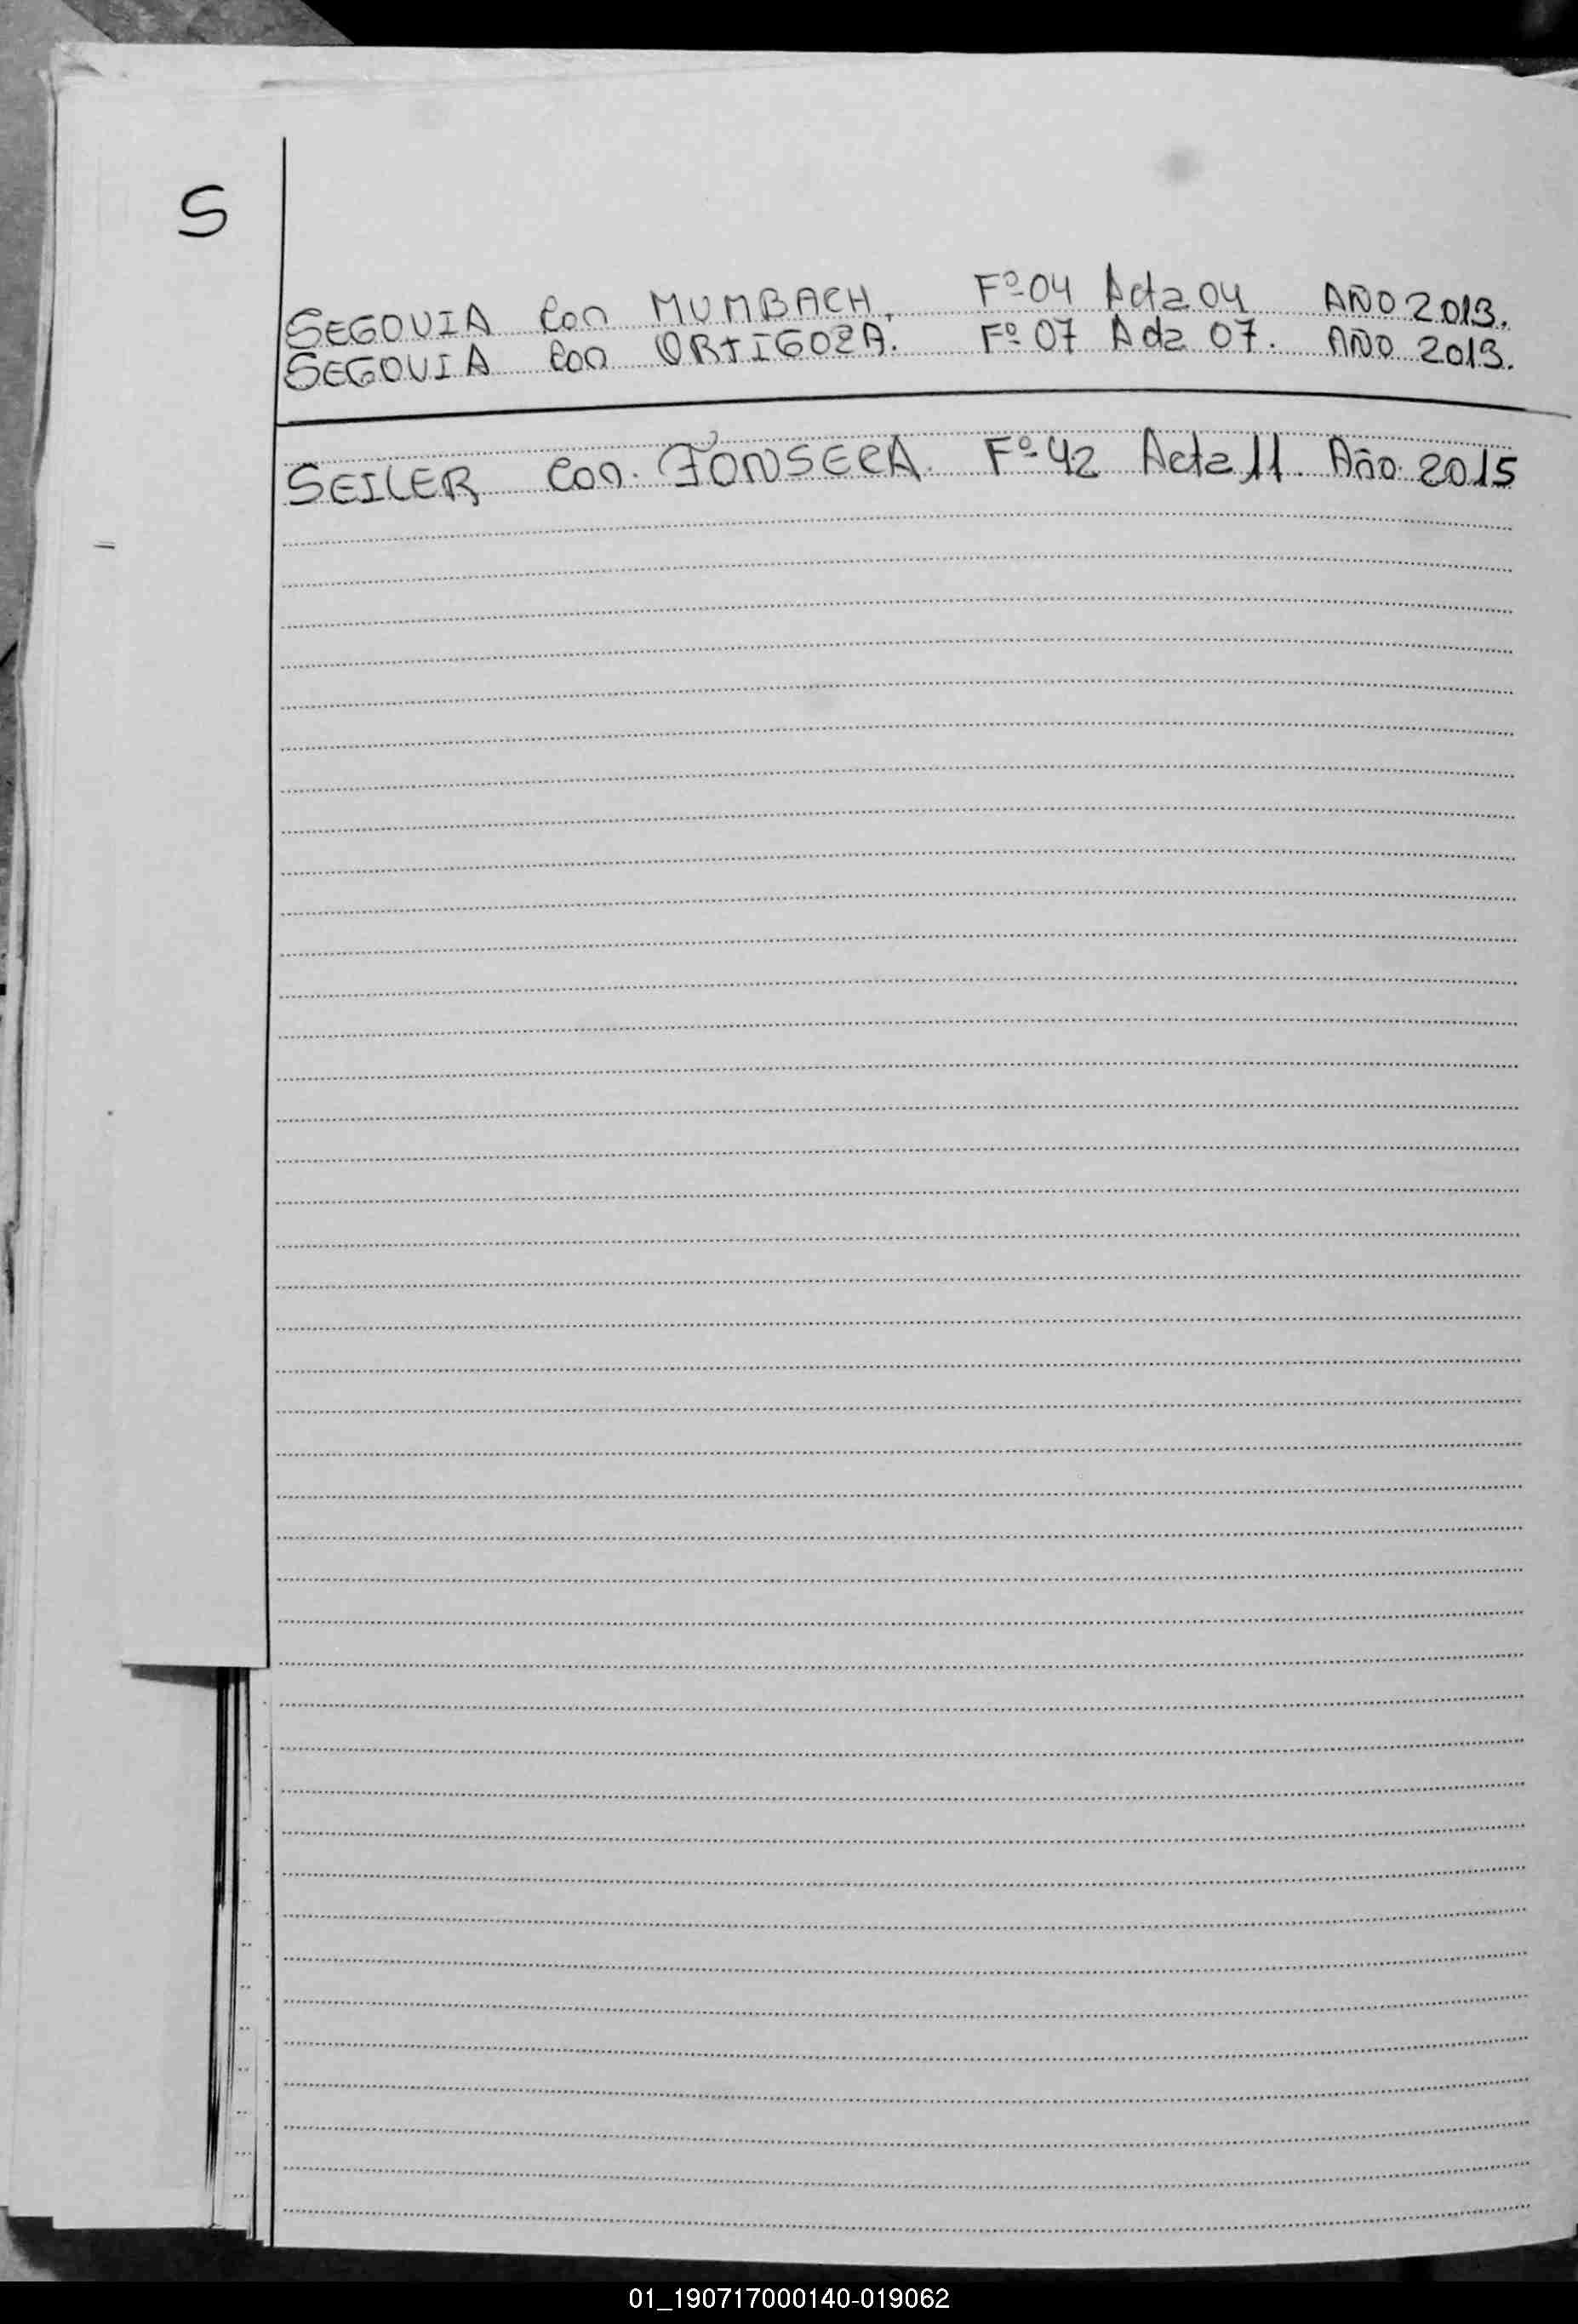 S
SEGOVIA con MUMBACH. Fº 04 Acta 04 AÑO 2013.
SEGOVIA con ORTIGOZA. Fº 07 Acta 07. AÑO 2013.
SEILER con FONSECA. Fº 42 Acta 11. Año 2015
01_190717000140-019062